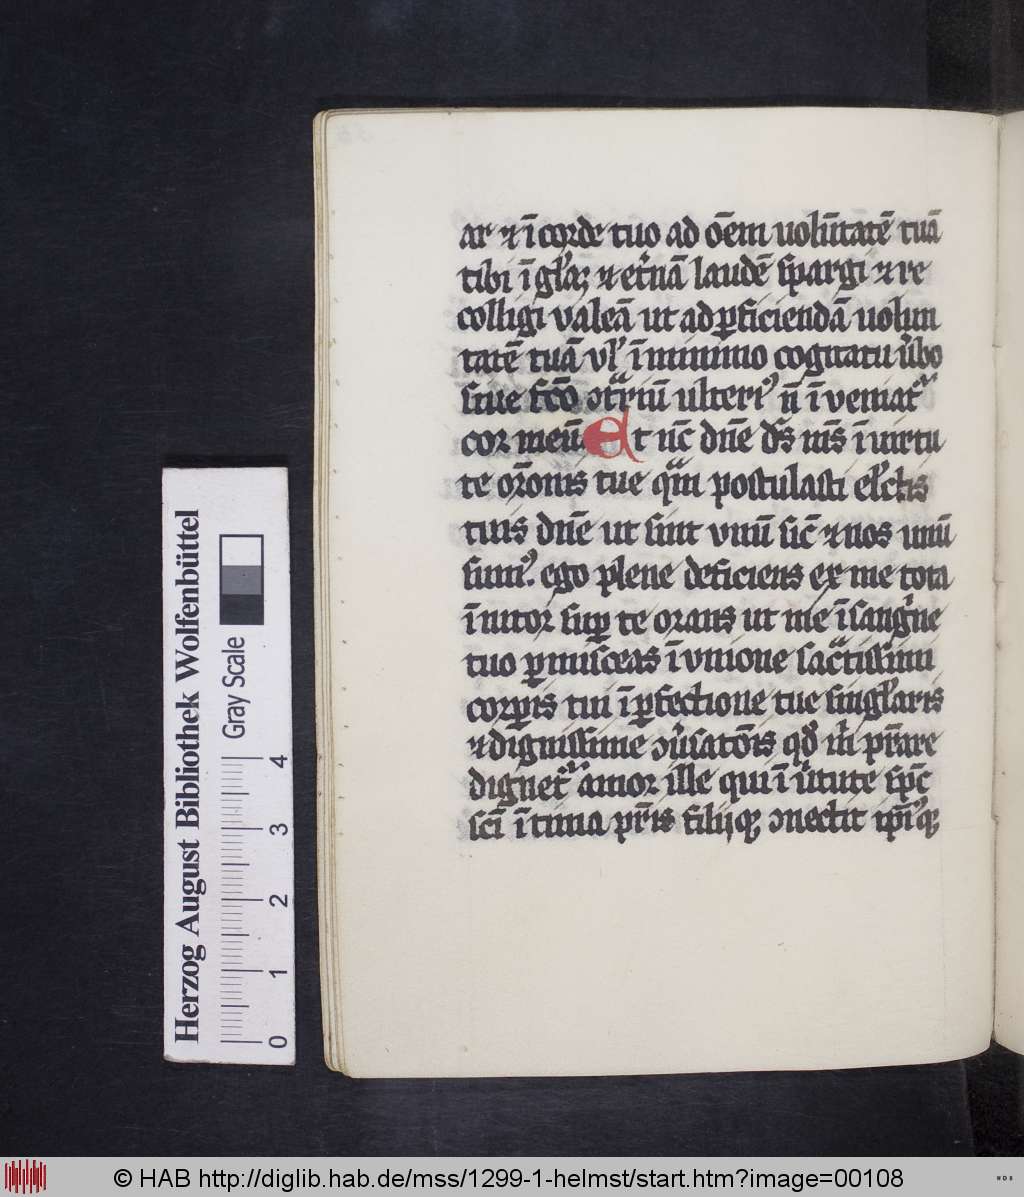 ar ⁊ ī corde tuo ad oēm uolūtatē tuā
tibi ī gl'aꝫ ⁊ et'nā laudē spargi ⁊ re
colligi valeā ut ad ꝑficiendā uolun
tatē tuā vl' ī minimo cogitatu u'bo
siue fc̄o ↄt̾riū ulteri᾿ n̄ īveniat᾿
cor meū Et nc̄ dn̄e ds̄ ms̄ ī uirtu
te or̄onis tue qͣm postulasti el'ctis
tuis dn̄e ut sint vnū sic̄ ⁊ nos unū
sum᾿. ego plene deficiens ex me tota
īnitor suꝑ te orans ut me ī sang'ne
tuo ꝑmisceas ī vnione sac̾tissimi
corꝑis tui ī ꝑfectione tue singl'aris
⁊ dignissime ↄu'satōis qd' m̄ pr̄are
dignet᾿ amor ille qui ī u'tute spc̄
sc̄i ītima pr̄is filijqꝫ ↄnectit ip̄i᾿qꝫ
Herzog August Bibliothek Wolfenbüttel
Gray Scale
0 1 2 3 4
© HAB http://diglib.hab.de/mss/1299-1-helmst/start.htm?image=00108